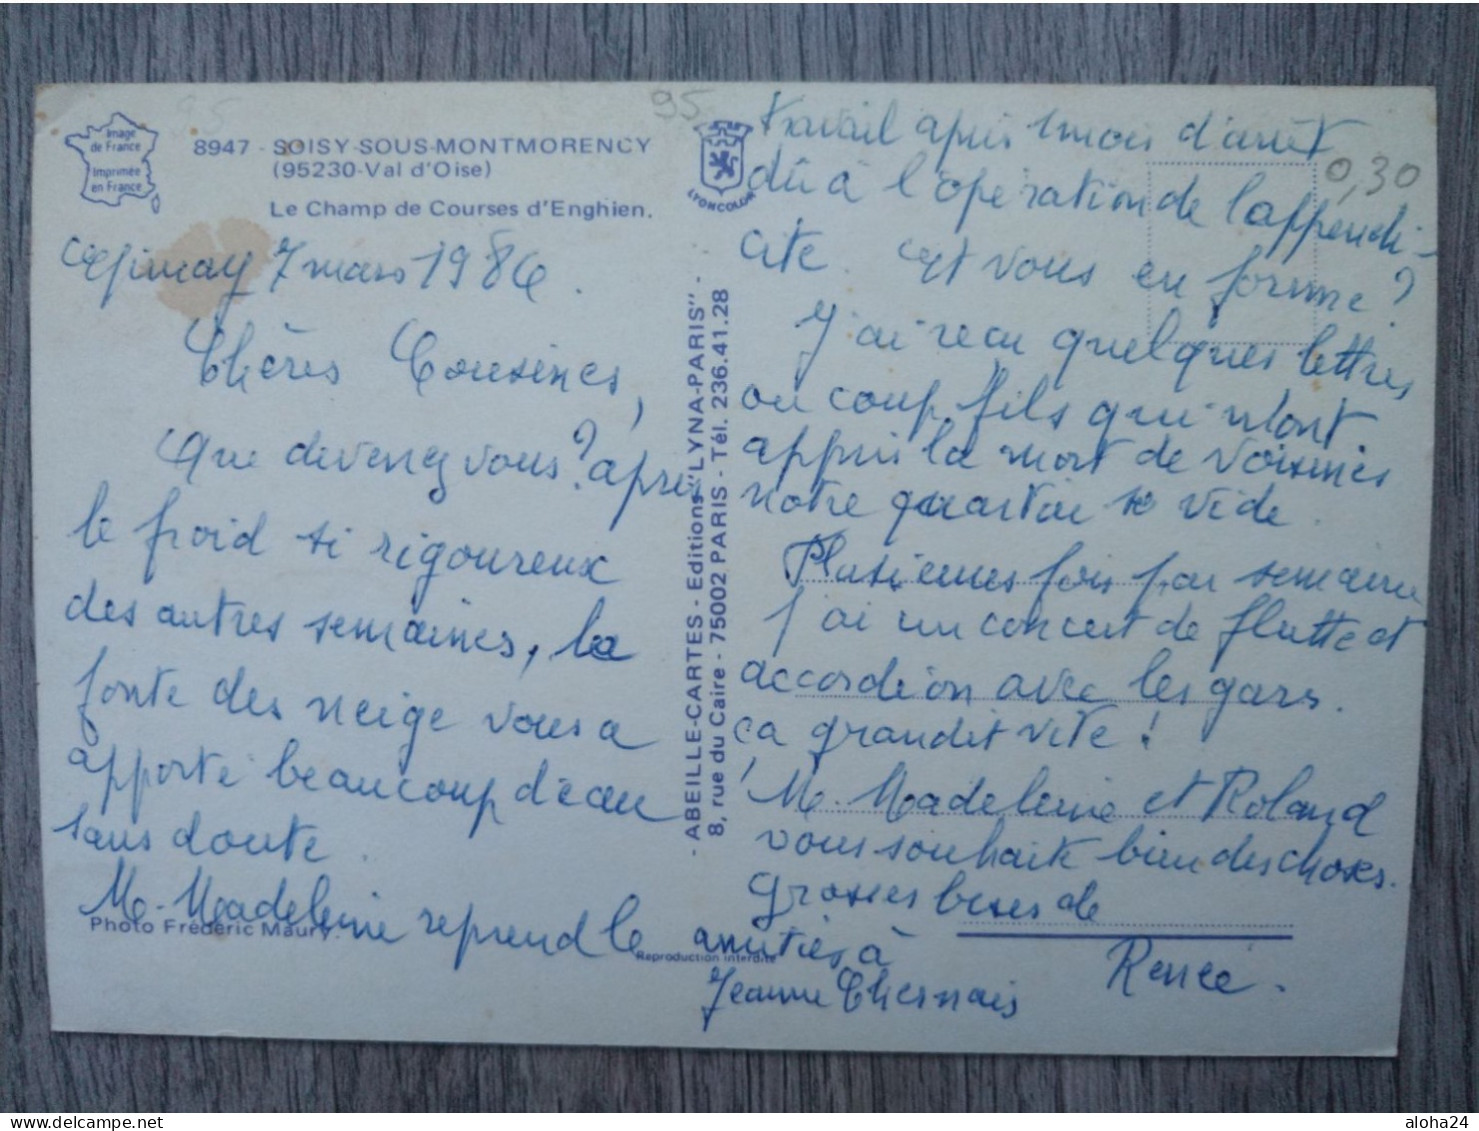 95
95
Image
de France
Imprimée
en France
8947 - SOISY-SOUS-MONTMORENCY
(95230-Val d'Oise)
Le Champ de Courses d'Enghien.
LYONCOLOR
0,30
Epinay 7 mars 1986.
Chères Cousines,
Que devenez vous? après
le froid si rigoureux
des autres semaines, la
fonte des neige vous a
apporté beaucoup d'eau
sans doute.
M. Madeleine reprend le
Photo Frédéric Maury.
Reproduction interdite
- ABEILLE-CARTES - Editions "LYNA-PARIS" -
8, rue du Caire - 75002 PARIS - Tél. 236.41.28
travail après 1 mois d'arrêt
dû à l'opération de l'appendi-
cite. Et vous en forme?
J'ai reçu quelques lettres
ou coup fils qui m'ont
appris la mort de voisines
notre quartier se vide.
Plusieurs fois par semaine
j'ai un concert de flutte et
accordéon avec les gars.
ça grandit vite!
M. Madeleine et Roland
vous souhaite bien des choses.
Grosses bises de
Renée.
amitiés à
Jeanne Chesnais
aloha24